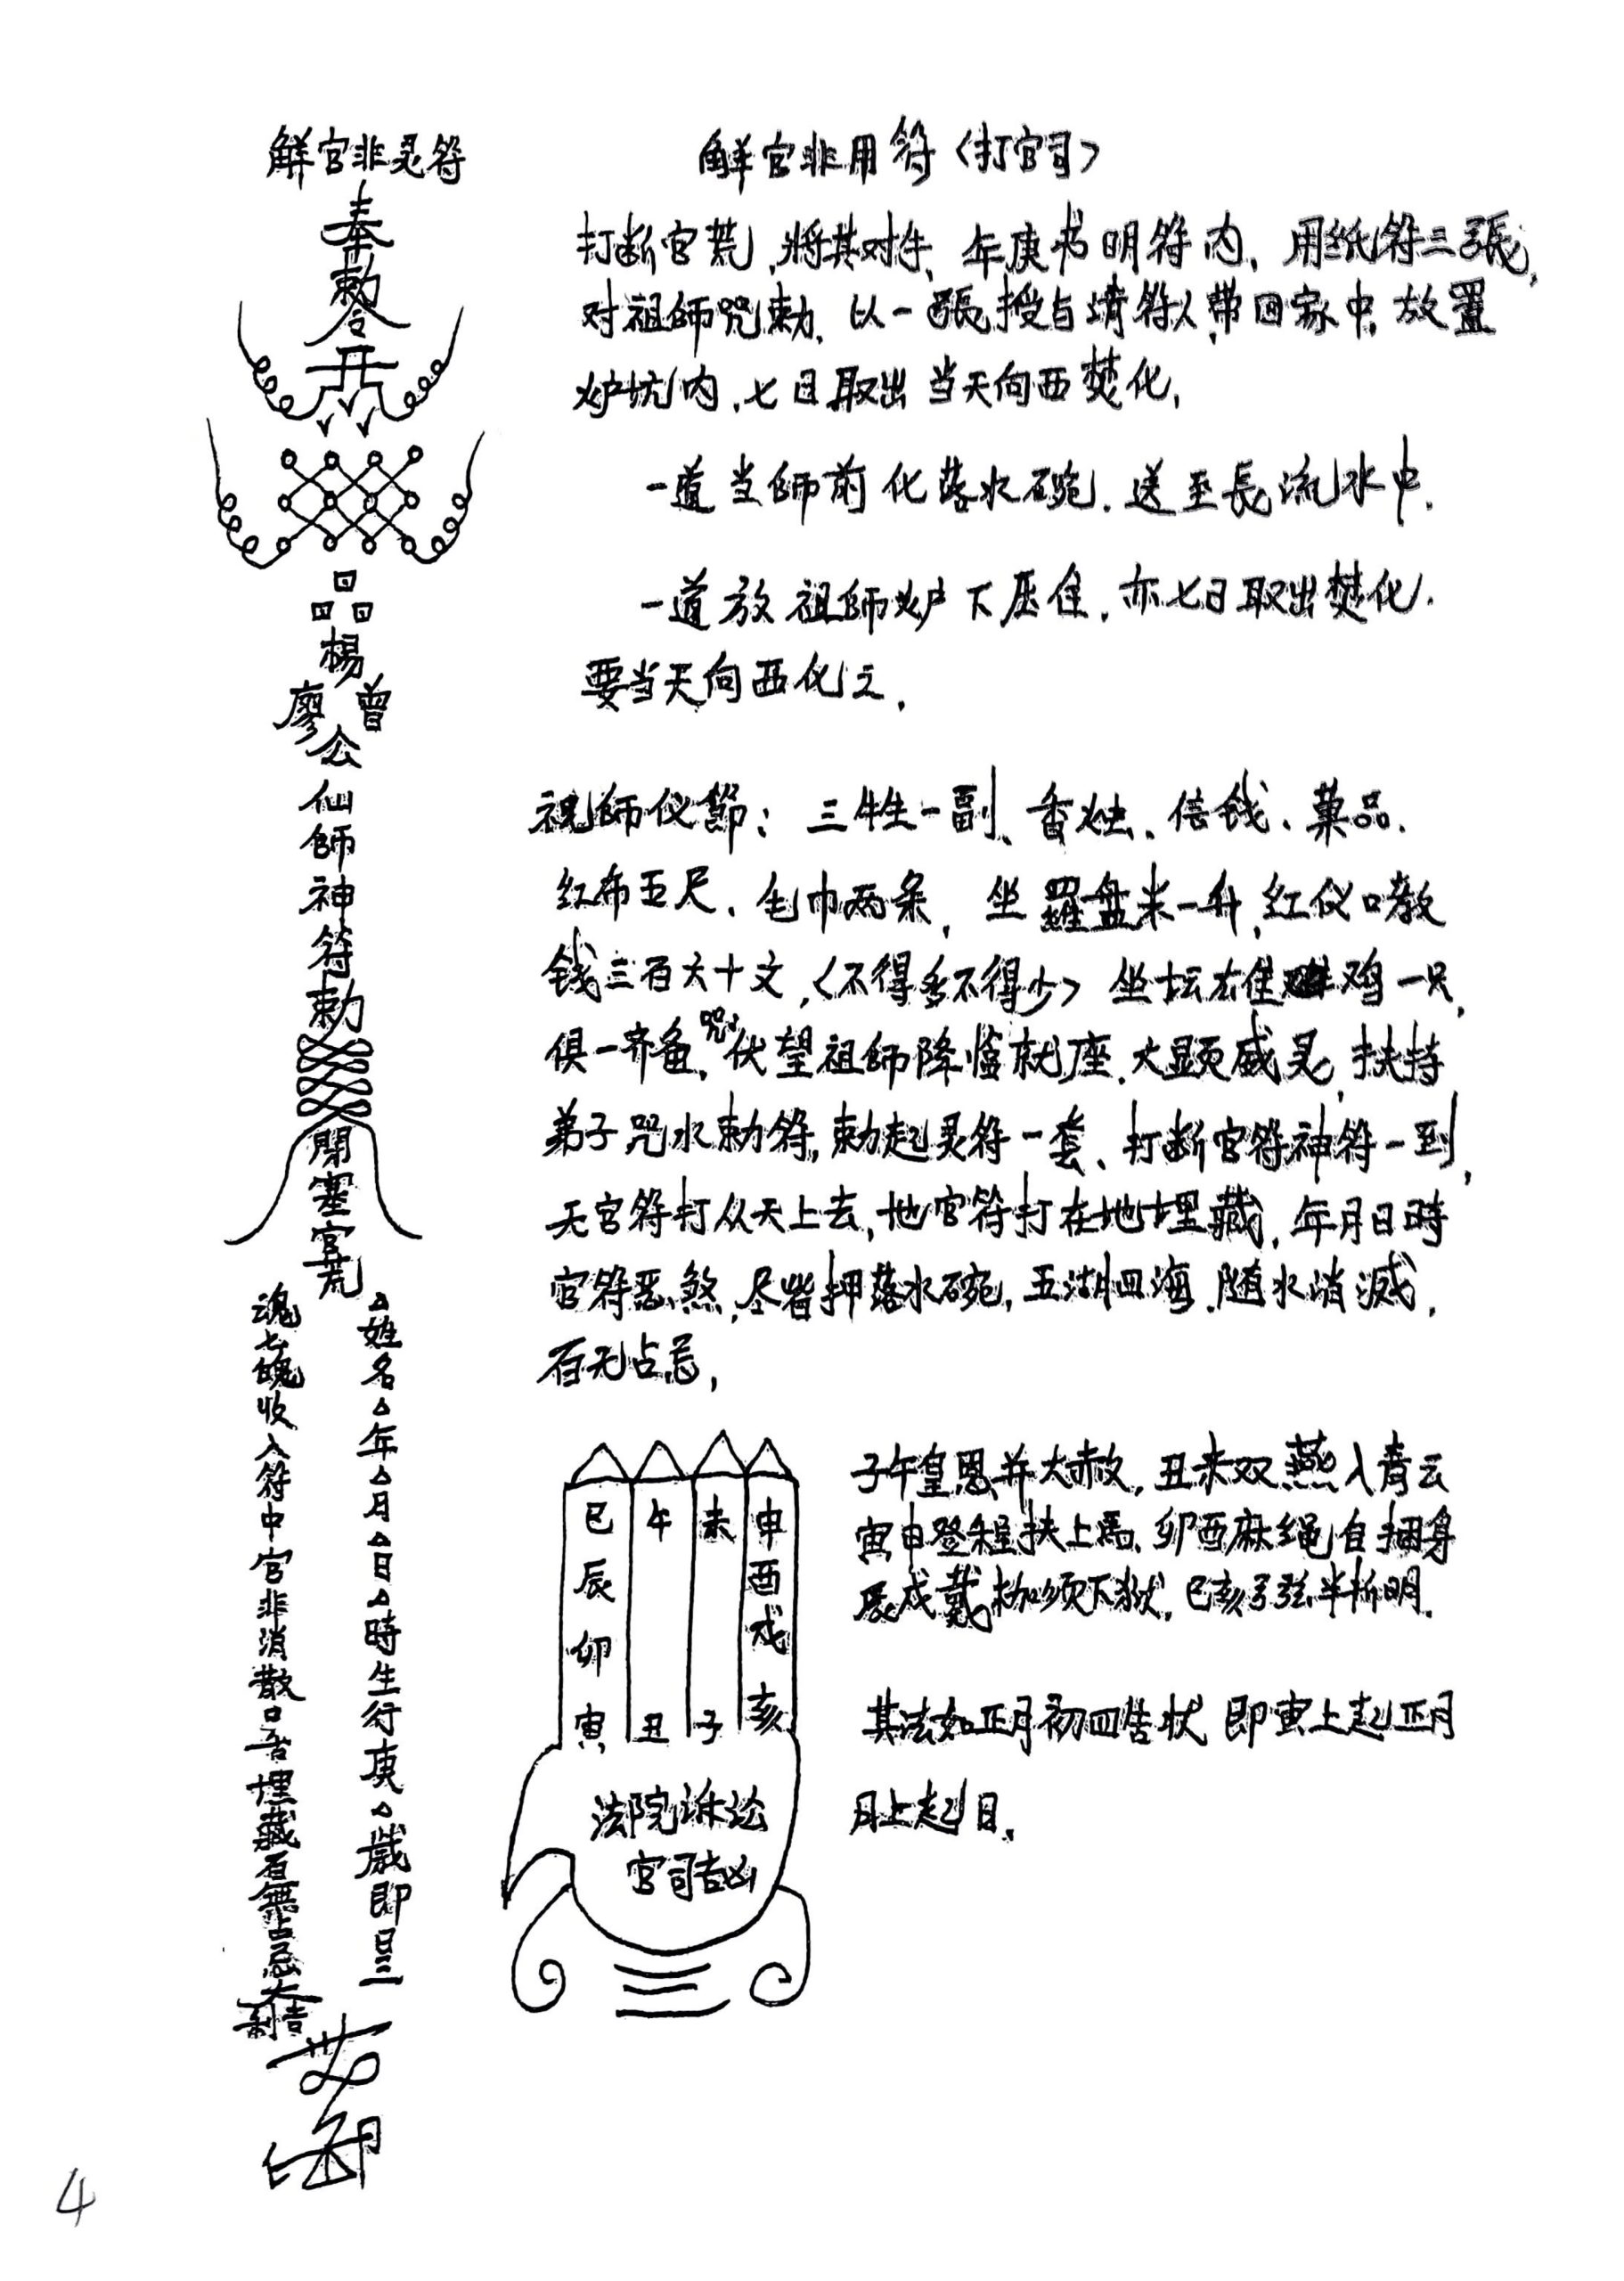 解官非灵符
奉
勅
令
楊
廖 曾
公
仙
師
神
符
勅
閉
塞
官
荒
△姓名△年△月△日△時生行庚△歲即日三
魂七魄收入符中官非消散口舌埋藏百無占忌大
吉利
解官非用符〈打官司〉
打断官荒,將其对牛、年庚书明符内、用纸符三張,
对祖師咒勅.以一張授与请符人,带回家中.放置
炉坑内.七日取出当天向西焚化,
一道当師前化落水碗.送至長流水中.
一道放祖師炉下压住.亦七日取出焚化.
要当天向西化之.
祝師仪節:三牲一副、香烛、信钱、菓品.
红布五尺、毛巾两条,坐羅盘米一升,红仪口教
钱三百六十文,〈不得多不得少〉坐坛雄鸡一只,
俱一齐备,咒伏望祖師降臨就座.大显威灵,扶持
弟子咒水勅符,勅起灵符一套、打断官符神符一到,
天官符打从天上去,地官符打在地埋藏,年月日時
官符恶煞,尽皆押落水碗,五湖四海.随水消滅,
百无占忌,
子午皇恩并大赦,丑未双燕入青云
寅申登程扶上馬,卯酉麻绳自捆身
辰戌戴枷须下狱,巳亥弓弦半折明.
其法如正月初四告状 即寅上起正月
月上起日.
巳 午 未 申
辰 酉
卯 戌
寅 丑 子 亥
法院诉讼
官司吉凶
4